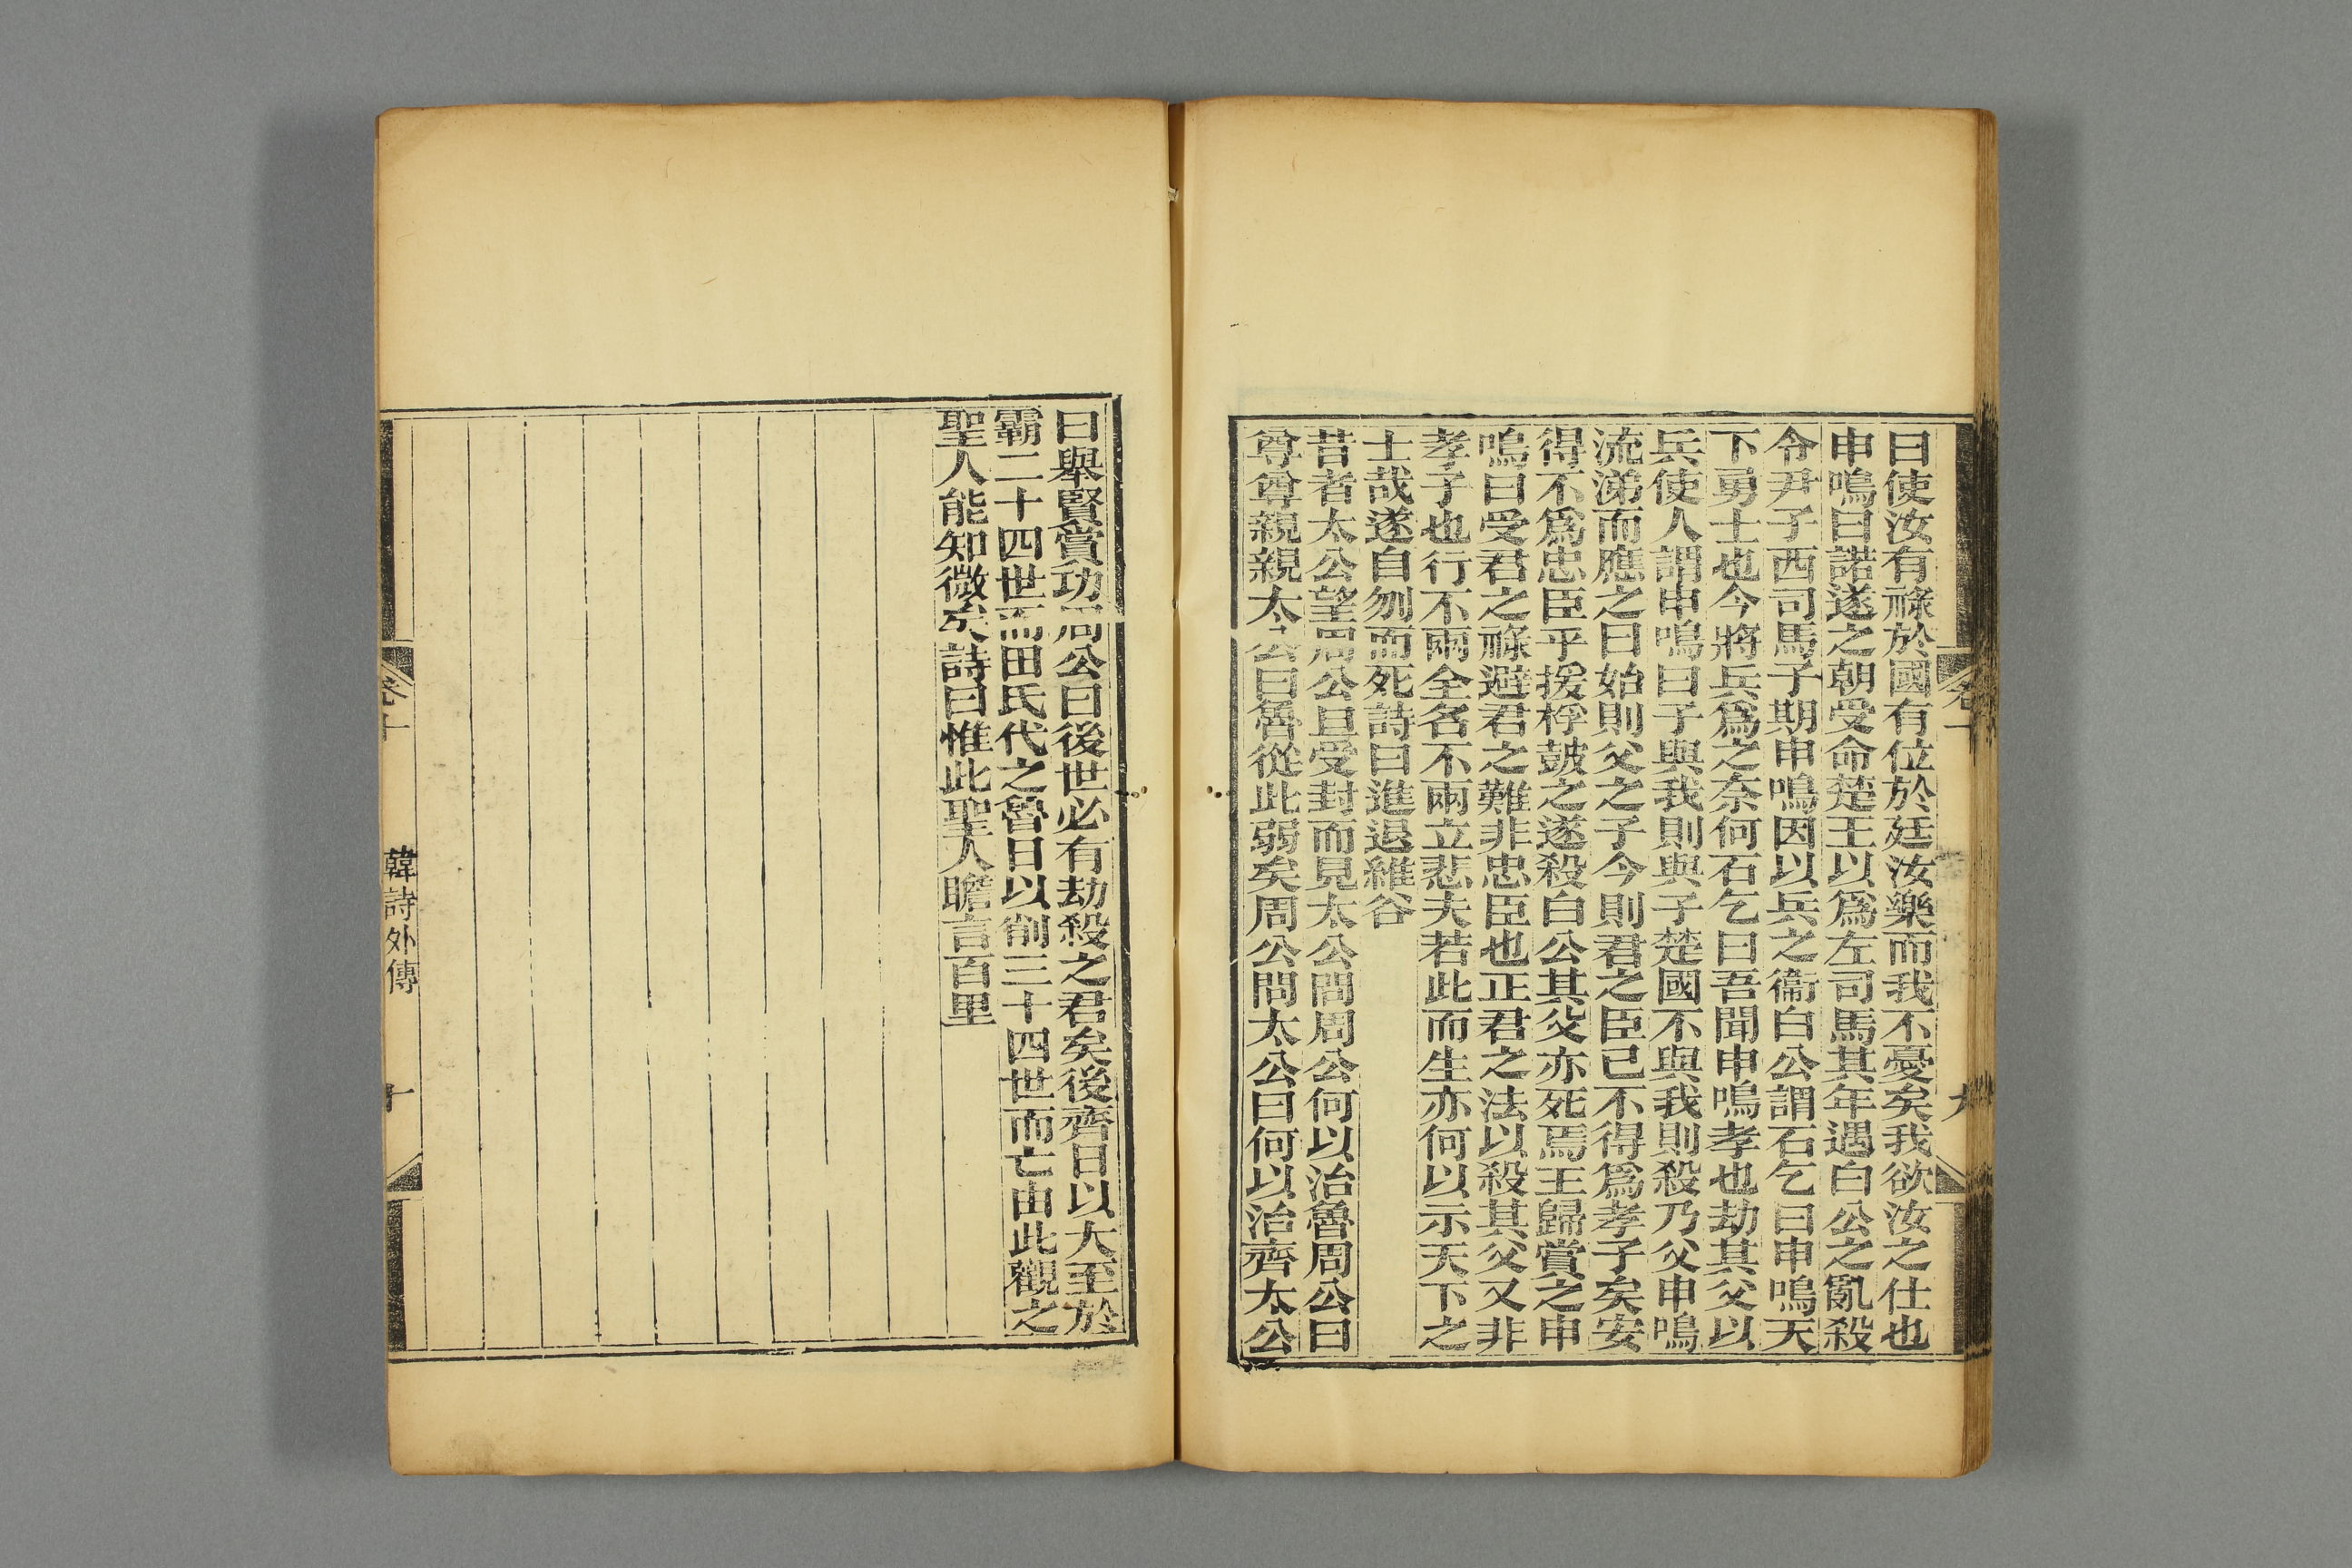 曰使汝有祿於國有位於廷汝樂而我不憂矣我欲汝之仕也
申鳴曰諾遂之朝受命楚王以爲左司馬其年遇白公之亂殺
令尹子西司馬子期申鳴因以兵之衞白公謂石乞曰申鳴天
下勇士也今將兵爲之奈何石乞曰吾聞申鳴孝也劫其父以
兵使人謂申鳴曰子與我則與子楚國不與我則殺乃父申鳴
流涕而應之曰始則父之子今則君之臣已不得爲孝子矣安
得不爲忠臣乎援桴鼓之遂殺白公其父亦死焉王歸賞之申
鳴曰受君之祿避君之難非忠臣也正君之法以殺其父又非
孝子也行不兩全名不兩立悲夫若此而生亦何以示天下之
士哉遂自刎而死詩曰進退維谷
昔者太公望周公旦受封而見太公問周公何以治魯周公曰
尊尊親親太公曰魯從此弱矣周公問太公曰何以治齊太公
曰舉賢賞功周公曰後世必有劫殺之君矣後齊日以大至於
霸二十四世而田氏代之魯日以削三十四世而亡由此觀之
聖人能知微矣詩曰惟此聖人瞻言百里
卷十
韓詩外傳
十